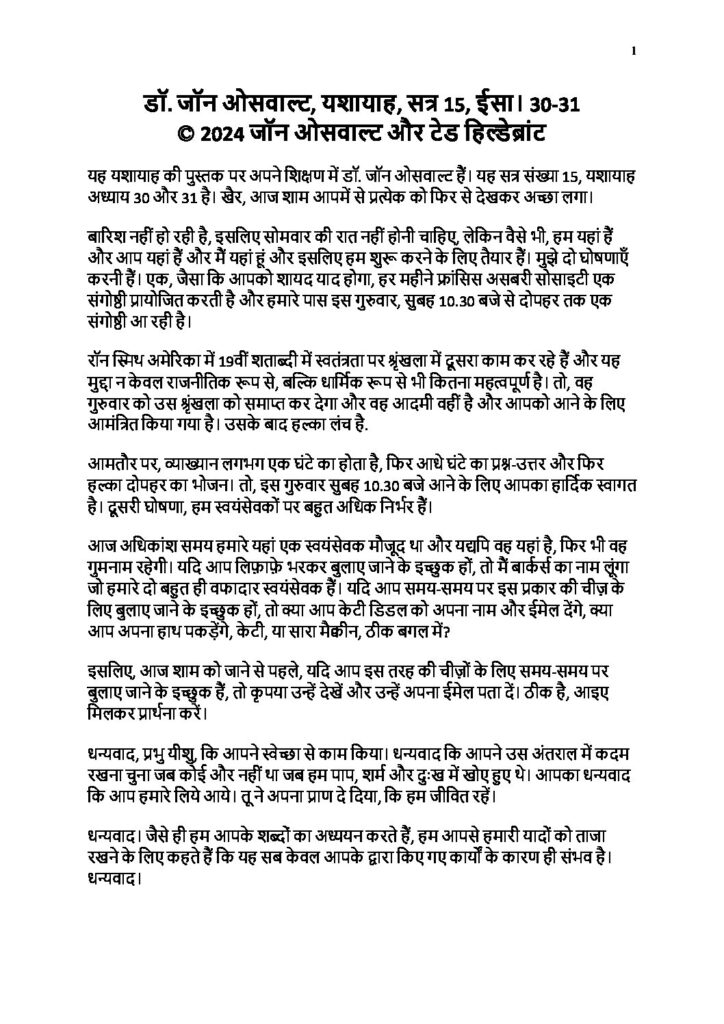 1
डॉ. जॉन ओसवाल्ट, यशायाह, सत्र 15, ईसा। 30-31
© 2024 जॉन ओसवाल्ट और टेड हिल्डेब्रांट
यह यशायाह की पुस्तक पर अपने शिक्षण में डॉ. जॉन ओसवाल्ट हैं। यह सत्र संख्या 15, यशायाह
अध्याय 30 और 31 है। खैर, आज शाम आपमें से प्रत्येक को फिर से देखकर अच्छा लगा।
बारिश नहीं हो रही है, इसलिए सोमवार की रात नहीं होनी चाहिए, लेकिन वैसे भी, हम यहां हैं
और आप यहां हैं और मैं यहां हूं और इसलिए हम शुरू करने के लिए तैयार हैं। मुझे दो घोषणाएँ
करनी हैं। एक, जैसा कि आपको शायद याद होगा, हर महीने फ्रांसिस असबरी सोसाइटी एक
संगोष्ठी प्रायोजित करती है और हमारे पास इस गुरुवार, सुबह 10.30 बजे से दोपहर तक एक
संगोष्ठी आ रही है।
रॉन स्मिथ अमेरिका में 19वीं शताब्दी में स्वतंत्रता पर श्रृंखला में दूसरा काम कर रहे हैं और यह
मुद्दा न केवल राजनीतिक रूप से, बल्कि धार्मिक रूप से भी कितना महत्वपूर्ण है। तो, वह
गुरुवार को उस श्रृंखला को समाप्त कर देगा और वह आदमी वहीं है और आपको आने के लिए
आमंत्रित किया गया है। उसके बाद हल्का लंच है.
आमतौर पर, व्याख्यान लगभग एक घंटे का होता है, फिर आधे घंटे का प्रश्न-उत्तर और फिर
हल्का दोपहर का भोजन। तो, इस गुरुवार सुबह 10.30 बजे आने के लिए आपका हार्दिक स्वागत
है। दूसरी घोषणा, हम स्वयंसेवकों पर बहुत अधिक निर्भर हैं।
आज अधिकांश समय हमारे यहां एक स्वयंसेवक मौजूद था और यद्यपि वह यहां है, फिर भी वह
गुमनाम रहेगी। यदि आप लिफ़ाफ़े भरकर बुलाए जाने के इच्छुक हों, तो मैं बार्कर्स का नाम लूंगा
जो हमारे दो बहुत ही वफादार स्वयंसेवक हैं। यदि आप समय-समय पर इस प्रकार की चीज़ के
लिए बुलाए जाने के इच्छुक हों, तो क्या आप केटी डिडल को अपना नाम और ईमेल देंगे, क्या
आप अपना हाथ पकड़ेंगे, केटी, या सारा मैक्वीन, ठीक बगल में?
इसलिए, आज शाम को जाने से पहले, यदि आप इस तरह की चीज़ों के लिए समय-समय पर
बुलाए जाने के इच्छुक हैं, तो कृपया उन्हें देखें और उन्हें अपना ईमेल पता दें। ठीक है, आइए
मिलकर प्रार्थना करें।
धन्यवाद, प्रभु यीशु, कि आपने स्वेच्छा से काम किया। धन्यवाद कि आपने उस अंतराल में कदम
रखना चुना जब कोई और नहीं था जब हम पाप, शर्म और दुःख में खोए हुए थे। आपका धन्यवाद
कि आप हमारे लिये आये। तू ने अपना प्राण दे दिया, कि हम जीवित रहें।
धन्यवाद। जैसे ही हम आपके शब्दों का अध्ययन करते हैं, हम आपसे हमारी यादों को ताजा
रखने के लिए कहते हैं कि यह सब केवल आपके द्वारा किए गए कार्यों के कारण ही संभव है।
धन्यवाद।